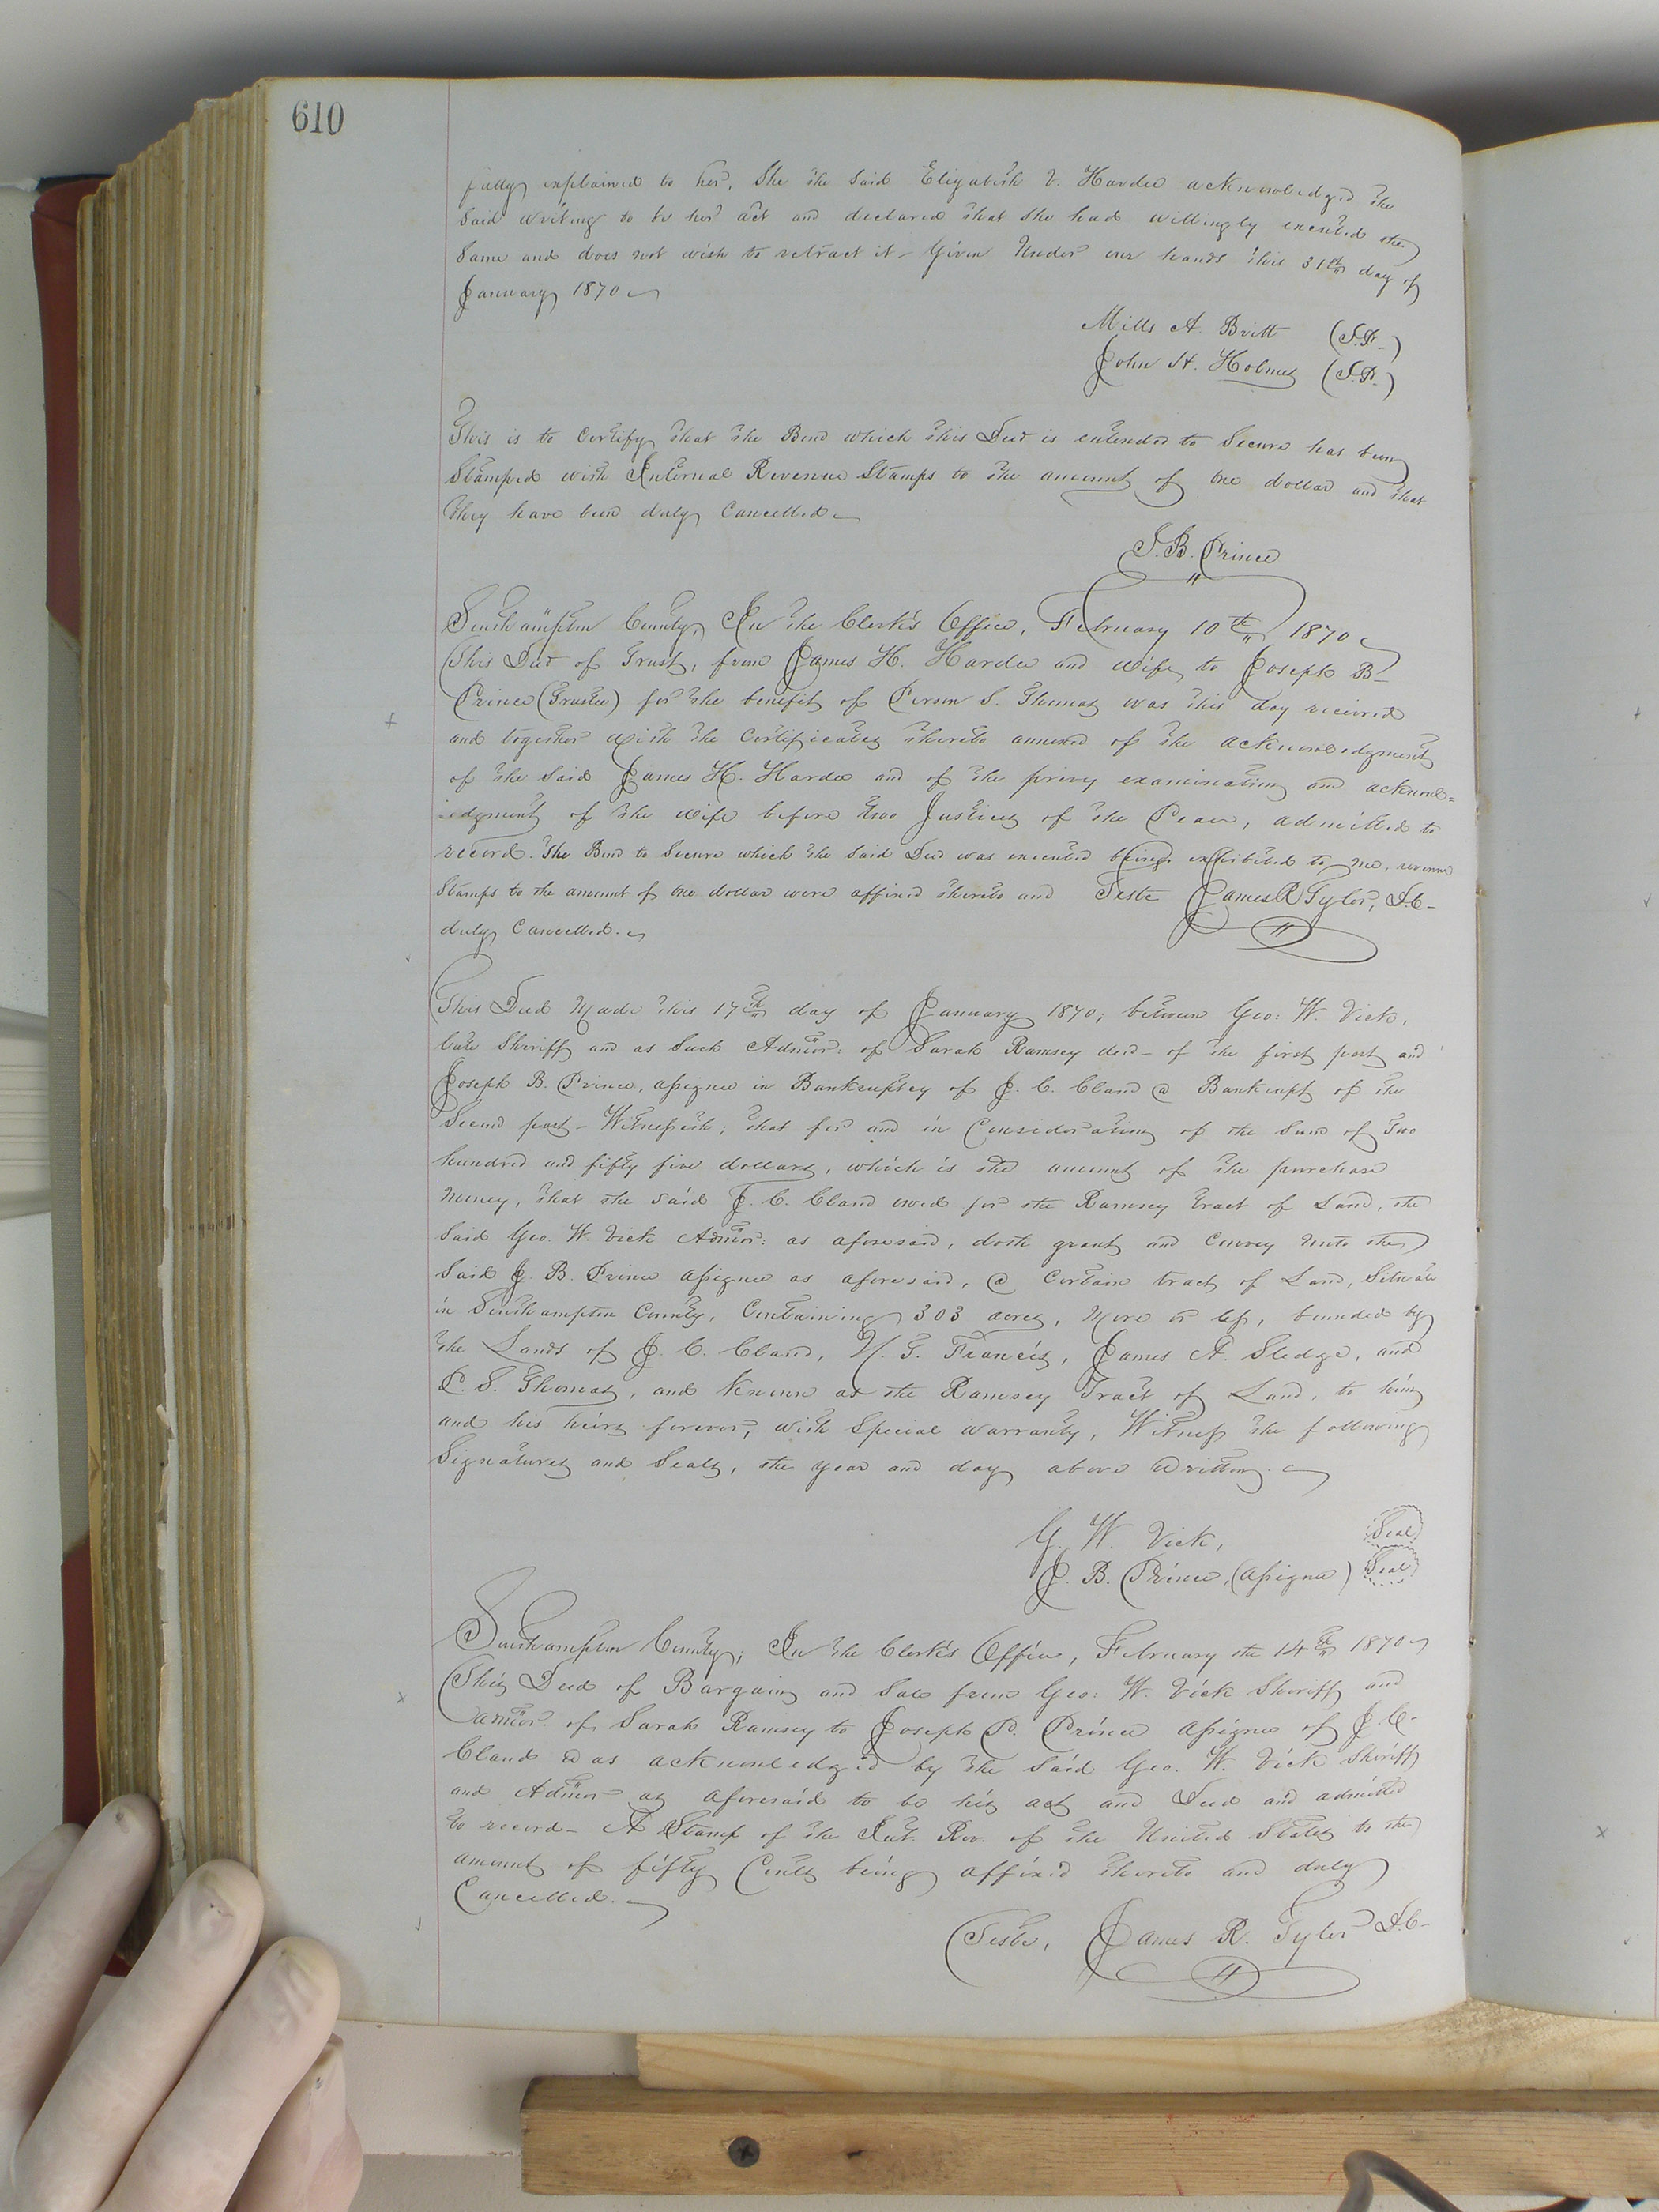 610
fully explained to her, She the Said Elizabeth V. Hardee acknowledged the
Said writing to be her act and declared that she had willingly executed the
Same and does not wish to retract it – Given Under our hands this 31st day of
January 1870
Mills A. Britt (J.P.)
John H. Holmes (J.P.)
This is to Certify that the Bond which this Deed is intended to Secure has been
Stamped with Internal Revenue Stamps to the amount of One dollar and that
they have been duly Cancelled.
J. B. Prince
Southampton County, In the Clerk's Office, February 10th, 1870
This Deed of Trust, from James H. Hardee and wife to Joseph B–
Prince (Trustee) for the benefit of Person S. Thomas was this day received
and together with the Certificates thereto annexed of the acknowledgment
of the Said James H. Hardee and of the privy examination and acknowl=
edgment of the wife before two Justices of the Peace, admitted to
record. The Bond to Secure which the Said Deed was executed being exhibited to me, revenue
Stamps to the amount of One dollar were affixed thereto and Teste James R Tyler, D.C–
duly Cancelled.
This Deed Made this 17th day of January 1870; between Geo: W. Vick,
late Sheriff and as Such Admor. of Sarah Ramsey decd– of the first part and
Joseph B. Prince, assignee in Bankruptcy of J. C. Cland a Bankrupt of the
Second part – Witnesseth; that for and in Consideration of the Sum of Two
hundred and fifty five dollars, which is the amount of the purchase
Money, that the said J. C. Cland owed for the Ramsey tract of Land, the
Said Geo. W. Vick Admor: as aforesaid, doth grant and Convey Unto the
Said J. B. Prince assignee as aforesaid, a Certain tract of Land, Situate
in Southampton County, Containing 303 acres, More or less, bounded by
the Lands of J. C. Cland, N. T. Francis, James A. Sledge, and
P. S. Thomas, and Known as the Ramsey Tract of Land, to him
and his heirs forever, with Special warranty, Witness the following
Signatures and Seals, the year and day above Written.
G. W. Vick, Seal
J. B. Prince, (assignee) Seal
Southampton County; In the Clerk's Office, February the 14th 1870
This Deed of Bargain and Sale from Geo: W. Vick Sheriff and
admor. of Sarah Ramsey to Joseph P. Prince assignee of J. C–
Cland was acknowledged by the Said Geo. W. Vick Sheriff
and Admor as aforesaid to be his act and Deed and admitted
to record – A Stamp of the Int. Rev. of the United States to the
amount of fifty Cents being affix'd thereto and duly
Cancelled.
Teste, James R. Tyler D.C–